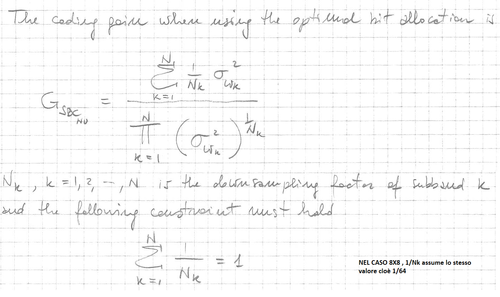 The coding gain when using the optimal bit allocation is
G_{SBC_{NU}} = \frac{\sum_{k=1}^{N} \frac{1}{N_k} \sigma_{w_k}^2}{\prod_{k=1}^{N} (\sigma_{w_k}^2)^{\frac{1}{N_k}}}
N_k, k = 1, 2, --, N is the downsampling factor of subband k
and the following constraint must hold
\sum_{k=1}^{N} \frac{1}{N_k} = 1
NEL CASO 8X8 , 1/Nk assume lo stesso
valore cioè 1/64